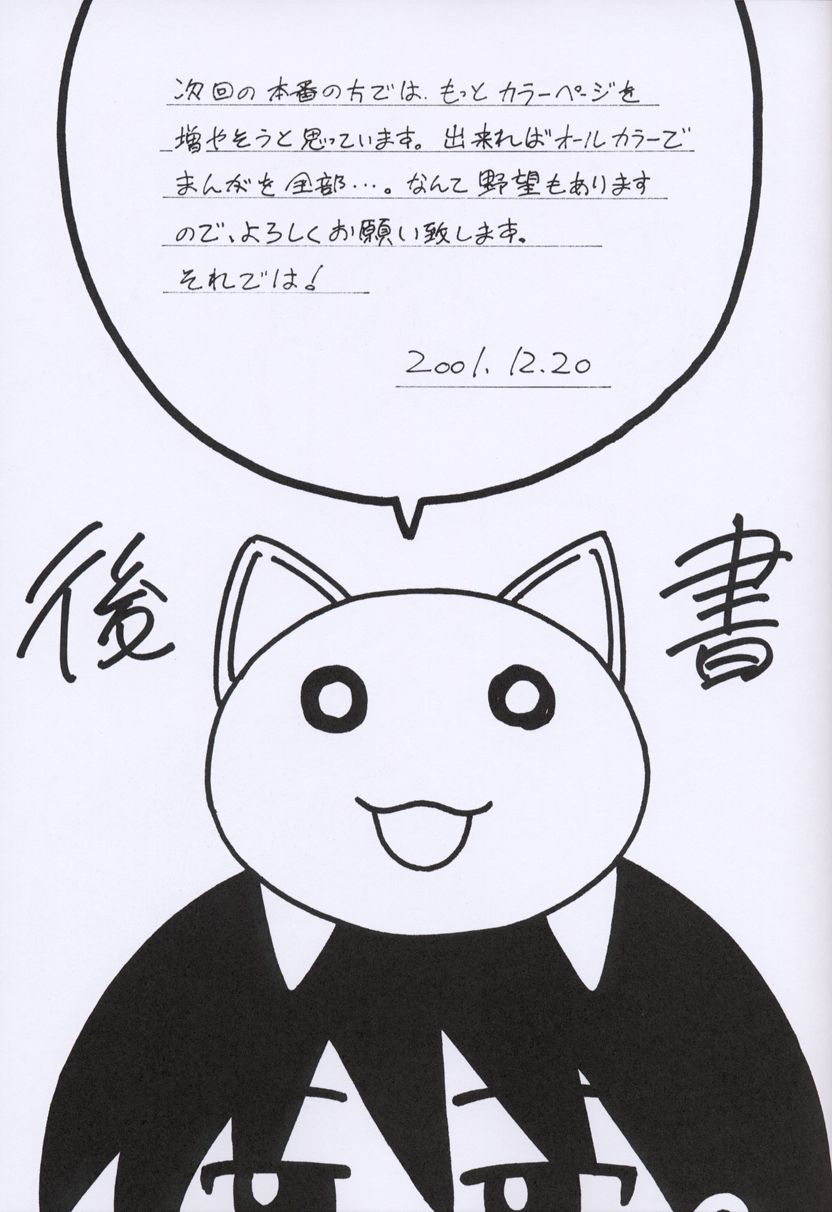 次回の本番の方では、もっとカラーページを
増やそうと思っています。出来ればオールカラーで
まんがを全部…。なんて野望もあります
ので、よろしくお願い致します。
それでは！
2001.12.20
後書